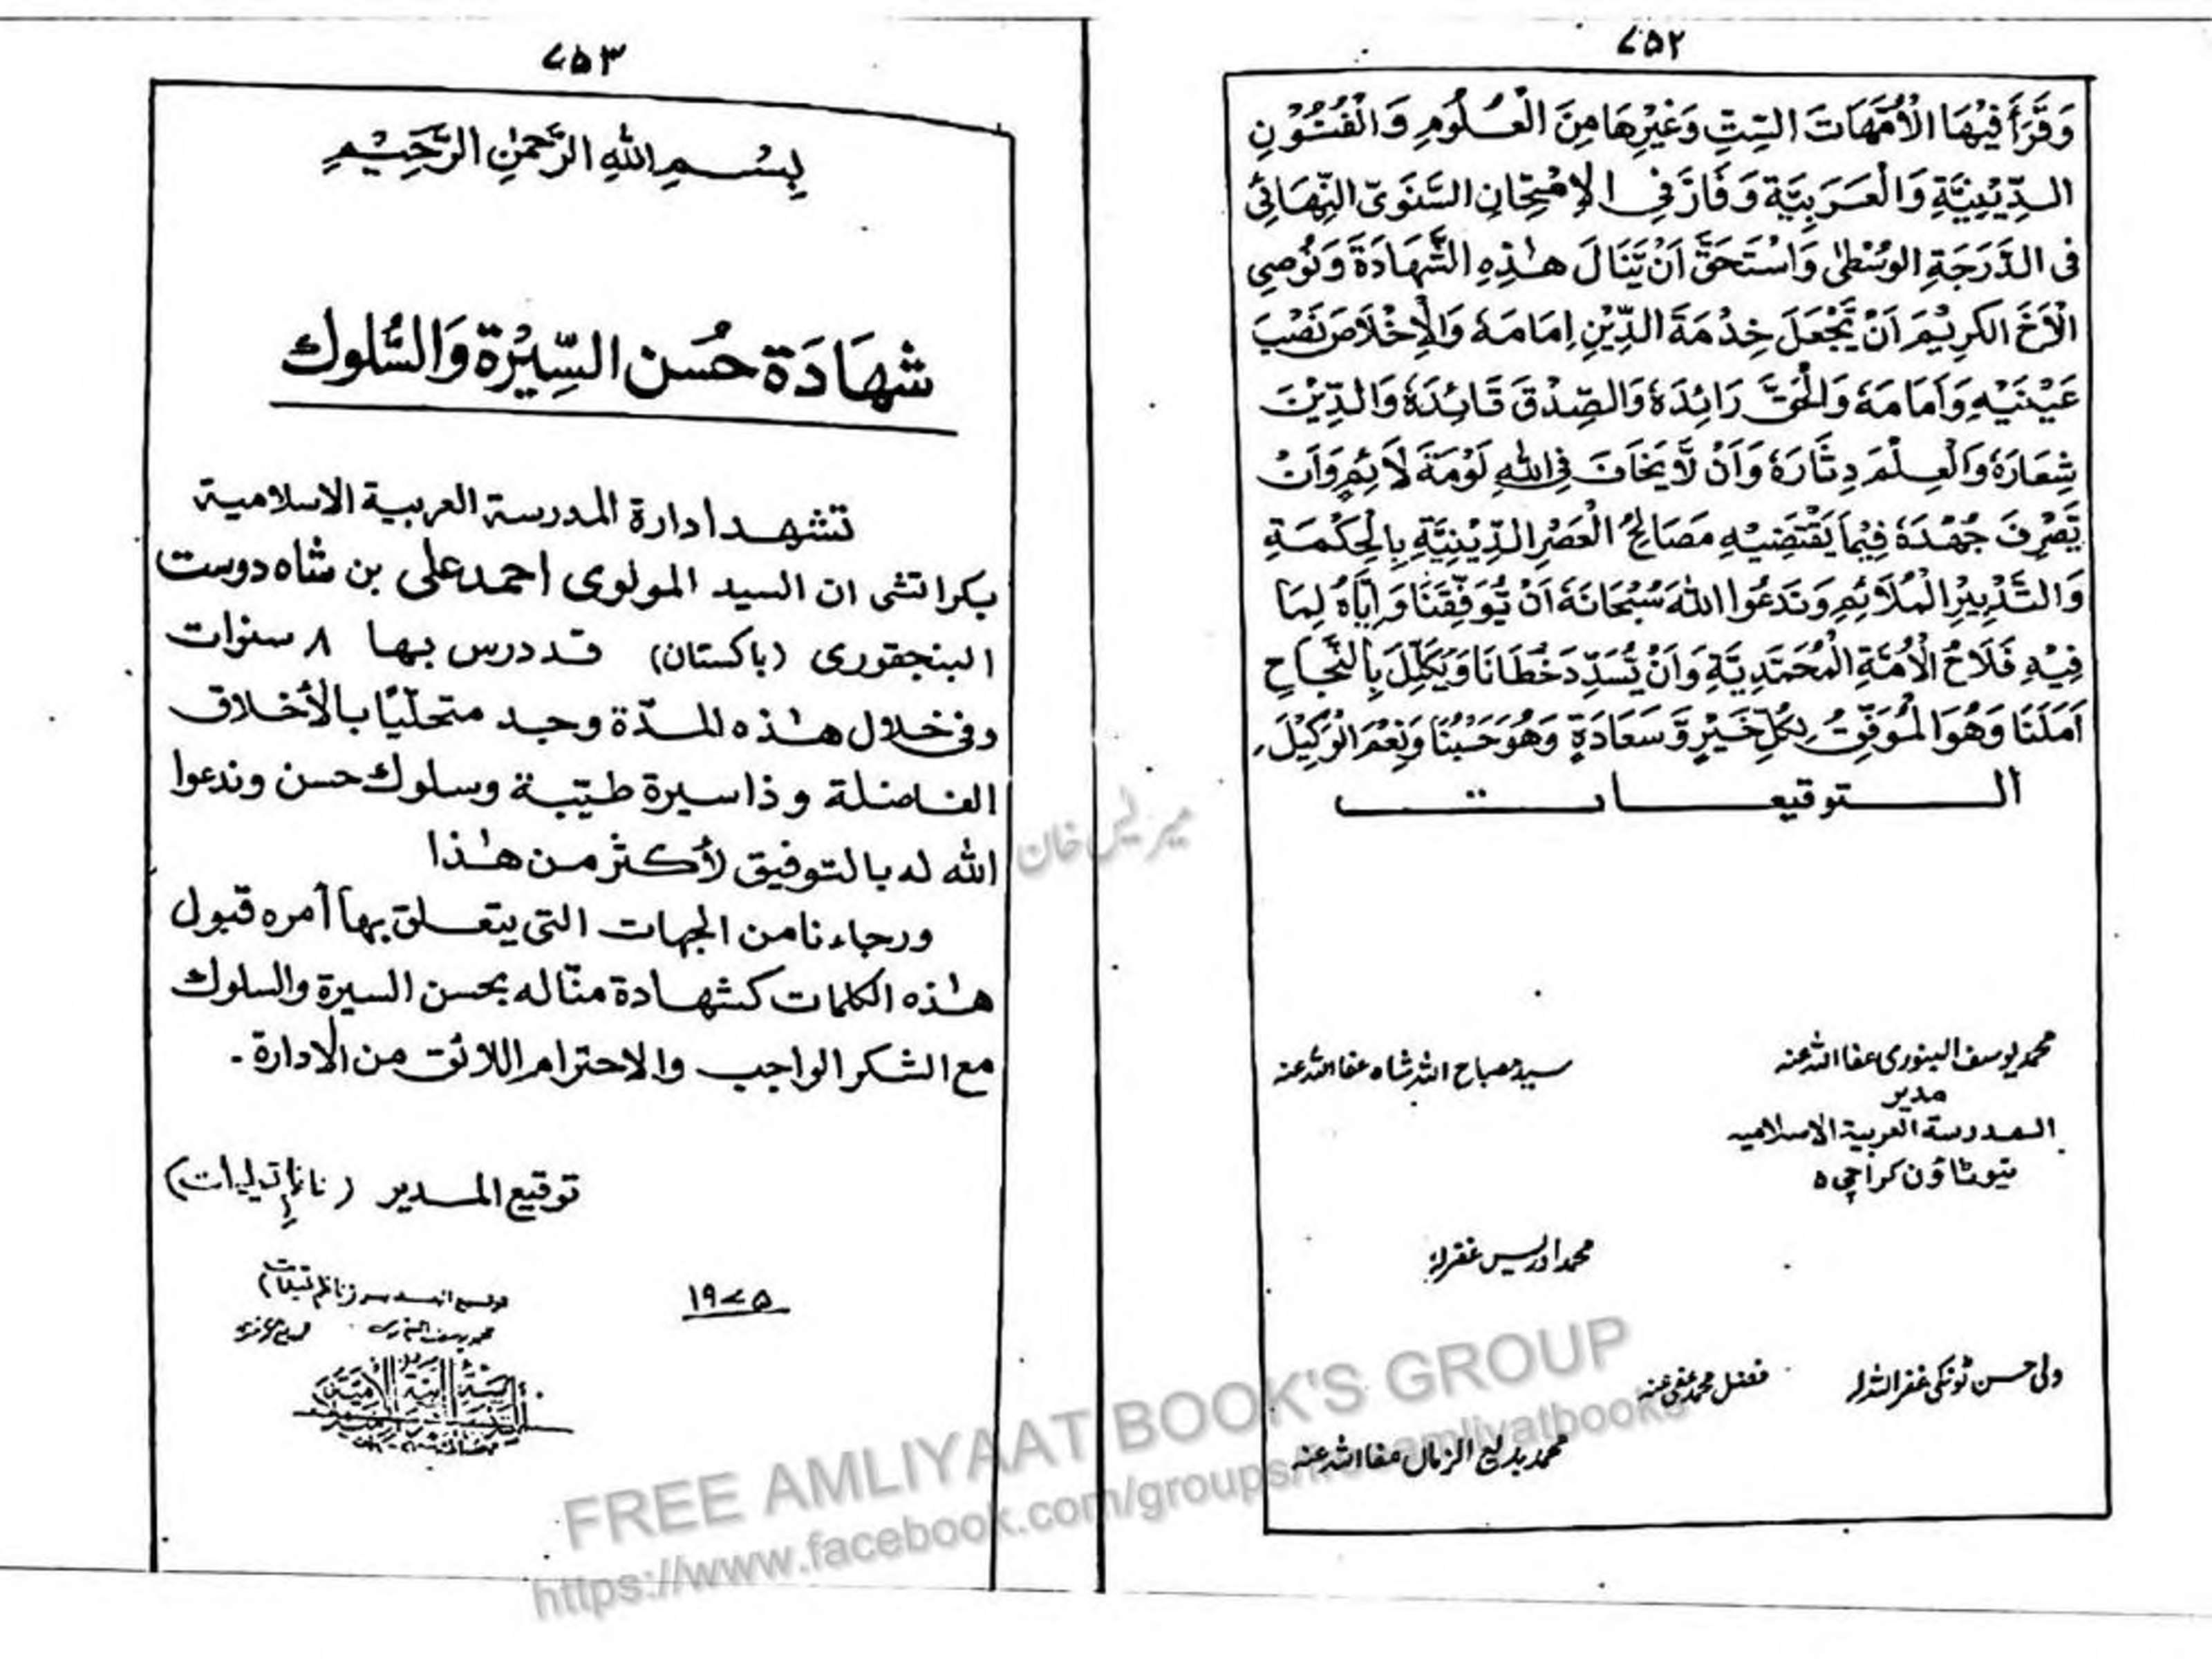 ۷۵۲
وَقَرَأَ فِيْهَا الْاُمَّهَاتَ السِّتِّ وَغَيْرِهَا مِنَ الْعُلُوْمِ وَالْفُنُوْنِ
الدِّيْنِيَّةِ وَالْعَرَبِيَّةِ وَفَازَ فِي الْاِمْتِحَانِ السَّنَوِيّ النِّهَائِي
فى الدَّرَجَةِ الوُسْطٰى وَاسْتَحَقَّ اَنْ يَّنَالَ هٰذِهِ الشَّهَادَةَ وَنُوْصِي
الْاَخَ الكَرِيْمَ اَنْ يَّجْعَلَ خِدْمَةَ الدِّيْنِ اِمَامَهٗ وَالْاِخْلَاصَ نَصْبَ
عَيْنَيْهِ وَاَمَامَهٗ وَالْحَقَّ رَائِدَهٗ وَالصِّدْقَ قَائِدَهٗ وَالدِّيْنَ
شِعَارَهٗ وَالْعِلْمَ دِثَارَهٗ وَاَنْ لَّا يَخَافَ فِي اللهِ لَوْمَةَ لَائِمٍ وَاَنْ
يَّصْرِفَ جُهْدَهٗ فِيْمَا يَقْتَضِيْهِ مَصَالِحُ الْعَصْرِ الدِّيْنِيَّةِ بِالْحِكْمَةِ
وَالتَّدْبِيْرِ الْمُلَائِمِ وَنَدْعُوا اللهَ سُبْحَانَهٗ اَنْ يُّوَفِّقَنَا وَاِيَّاهُ لِمَا
فِيْهِ فَلَاحُ الْاُمَّةِ الْمُحَمَّدِيَّةِ وَاَنْ يُّسَدِّدَ خُطَانَا وَيُكَلِّلَ بِالنَّجَاحِ
اَمَلَنَا وَهُوَ الْمُوَفِّقُ لِكُلِّ خَيْرٍ وَّسَعَادَةٍ وَهُوَ حَسْبُنَا وَنِعْمَ الْوَكِيْلَ
التوقيعات
محمد یوسف البنوری عفا اللہ عنہ
سید مصباح اللہ شاہ عفا اللہ عنہ
مدیر
المدرسة العربية الاسلامیہ
نیو ٹاؤن کراچی ۵
محمد ادریس غفرلہ
ولی حسن ٹونکی غفر اللہ لہ
فضل محمد عفی عنہ
محمد بدیع الزمان عفا اللہ عنہ
۷۵۳
بِسْمِ اللهِ الرَّحْمٰنِ الرَّحِيْمِ
شهَادَة حُسَن السِّيْرة وَالسُّلوك
تشهد ادارة المدرسة العربية الاسلامية
بكراتشى ان السيد المولوى احمد على بن شاه دوست
البنجقورى (باكستان) قد درس بها ۸ سنوات
وفى خلال هٰذه المدّة وجد متحليًا بالأخلاق
الفاضلة وذا سيرة طيّبة وسلوك حسن وندعوا
الله له بالتوفيق لأكثر من هٰذا
ورجاءنا من الجهات التى يتعلق بها أمره قبول
هٰذه الكلمات كشهادة منّا له بحسن السيرة والسلوك
مع الشكر الواجب والاحترام اللائق من الادارة ۔
توقيع المدير (ناظم تعلیمات)
۱۹۷۵
میر لیس خان
FREE AMLIYAAT BOOK'S GROUP
https://www.facebook.com/groups/freeamliyatbooks